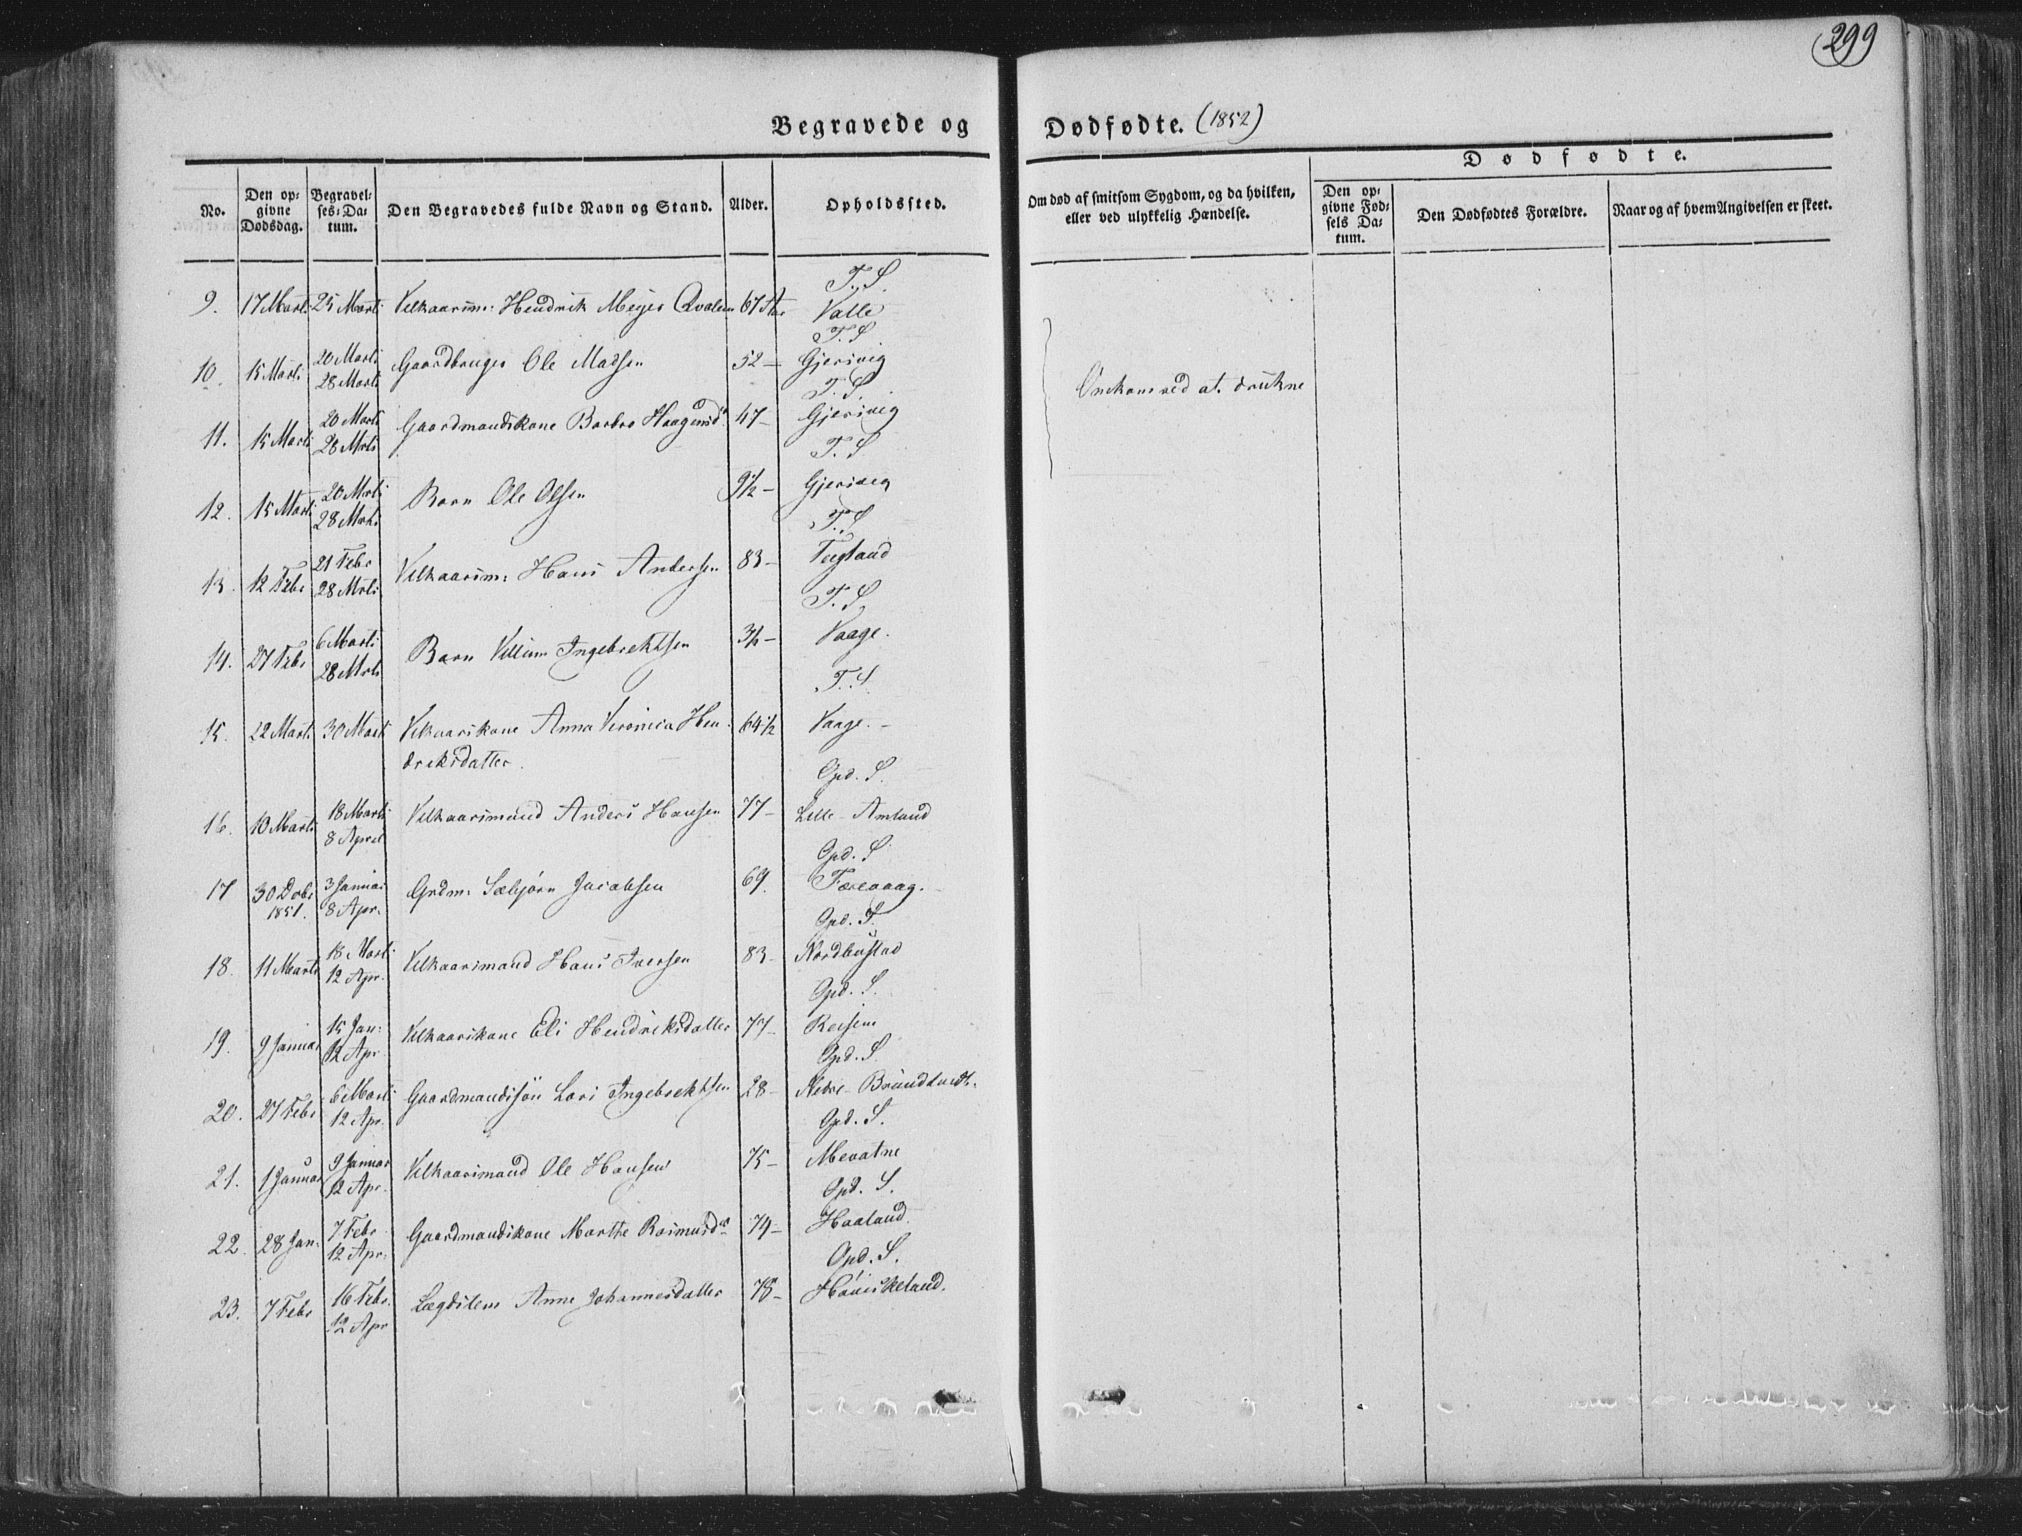 299
Begravede og Dødfødte. (1852)
No. Den opgivne Dødsdag. Begravelses-Datum. Den Begravedes fulde Navn og Stand. Alder. Opholdssted. Om død af smitsom Sygdom, og da hvilken, eller ved ulykkelig Hændelse. Dødfødte. Den opgivne Fødsels Datum. Den Dødfødtes Forældre. Naar og af hvem Angivelsen er skeet.
T. S.
9. 17 Marti 25 Marti Velkaarsm: Hendrik Meyer 67 Aar Valle
T. S
10. 15 Marti 20 Marti 28 Marti Gaardbruger Ole Madsen 52 – Gjerivig
Omkom ved at drukne
T. S.
11. 15 Marti 20 Marti 28 Mrti Gaardmandskone Barbro Haagensd 47 – Gjerivig
T. S
12. 15 Marti 20 Mrti 28 Mrti Barn Ole Olsen 9½ – Gjerivig
T. S
13. 12 Febr 21 Febr 28 Mrti Velkaarsm: Hans Andersen 83 –
T. S.
14. 27 Febr 6 Marti 28 Mrti Barn Villum Ingebrektsen Vaage.
T. S.
15. 22 Marti 30 Marti Velkaarskone Anna Veronica Hen- 64½ Vaage. –
dreksdatter.
Opd. S.
16. 10 Marti 18 Marti 8 April Velkaarsmand Anders Hansen 77 – Lille-Amland
Opd. S
17 30 Dcbr 1851. 3 Januar 8 Apr. Grdm: Sæbjørn Jacobsen 69. Færevaag.
Opd. S.
18. 11 Marti 18 Marti 12 Apr. Velkaarsmand Hans Iversen 83 – Nordbustad
Opd. S.
19. 9 Januar 15 Jan: 12 Apr Velkaarskone Eli Hendriksdatter 77 – Reisem
Opd. S
20. 27 Febr 6 Marti 12 Apr. Gaardmandssøn Lars Ingebrektsen 28 –
Opd. S.
21. 1 Januar 9 Januar 12 Apr. Velkaarsmand Ole Hansen 75 – Mevatne
Opd. S.
22. 28 Jan. 7 Febr 12 Apr. Gaardmandskone Marthe Rasmusdr 74 – Haaland.
Opd. S.
23. 7 Febr 16 Febr. 12 Apr Lægdslem Anne Johannesdatter 75 –